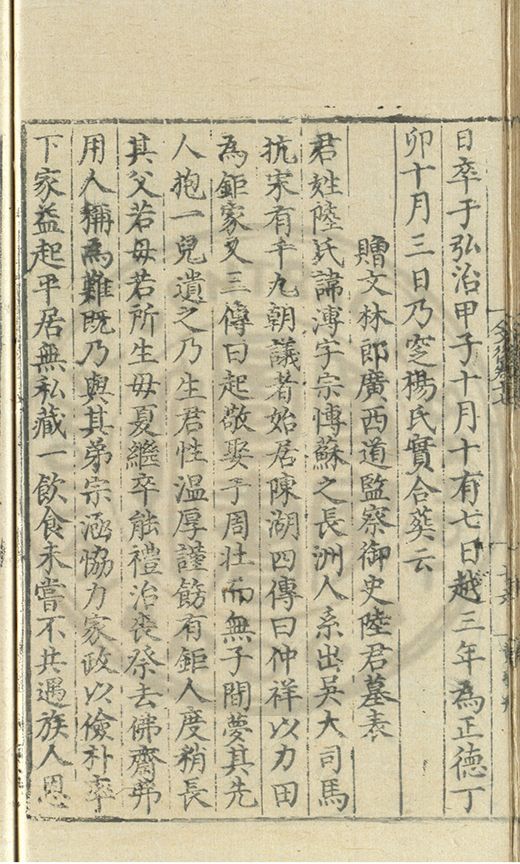 日卒于弘治甲子十月十有七日越三年為正德丁
卯十月三日乃窆楊氏實合葬云
贈文林郎廣西道監察御史陸君墓表
君姓陸氏諱溥字宗博蘇之長洲人系出吳大司馬
抗宋有千九朝議者始居陳湖四傳曰仲祥以力田
為鉅家又三傳曰起敬娶于周壮而無子間夢其先
人抱一兒遺之乃生君性温厚謹飭有鉅人度稍長
其父若母若所生母夏繼卒能禮治喪祭去佛齋弗
用人稱為難既乃與其弟宗涵恊力家政以儉朴率
下家益起平居無私藏一飲食未嘗不共遇族人恩